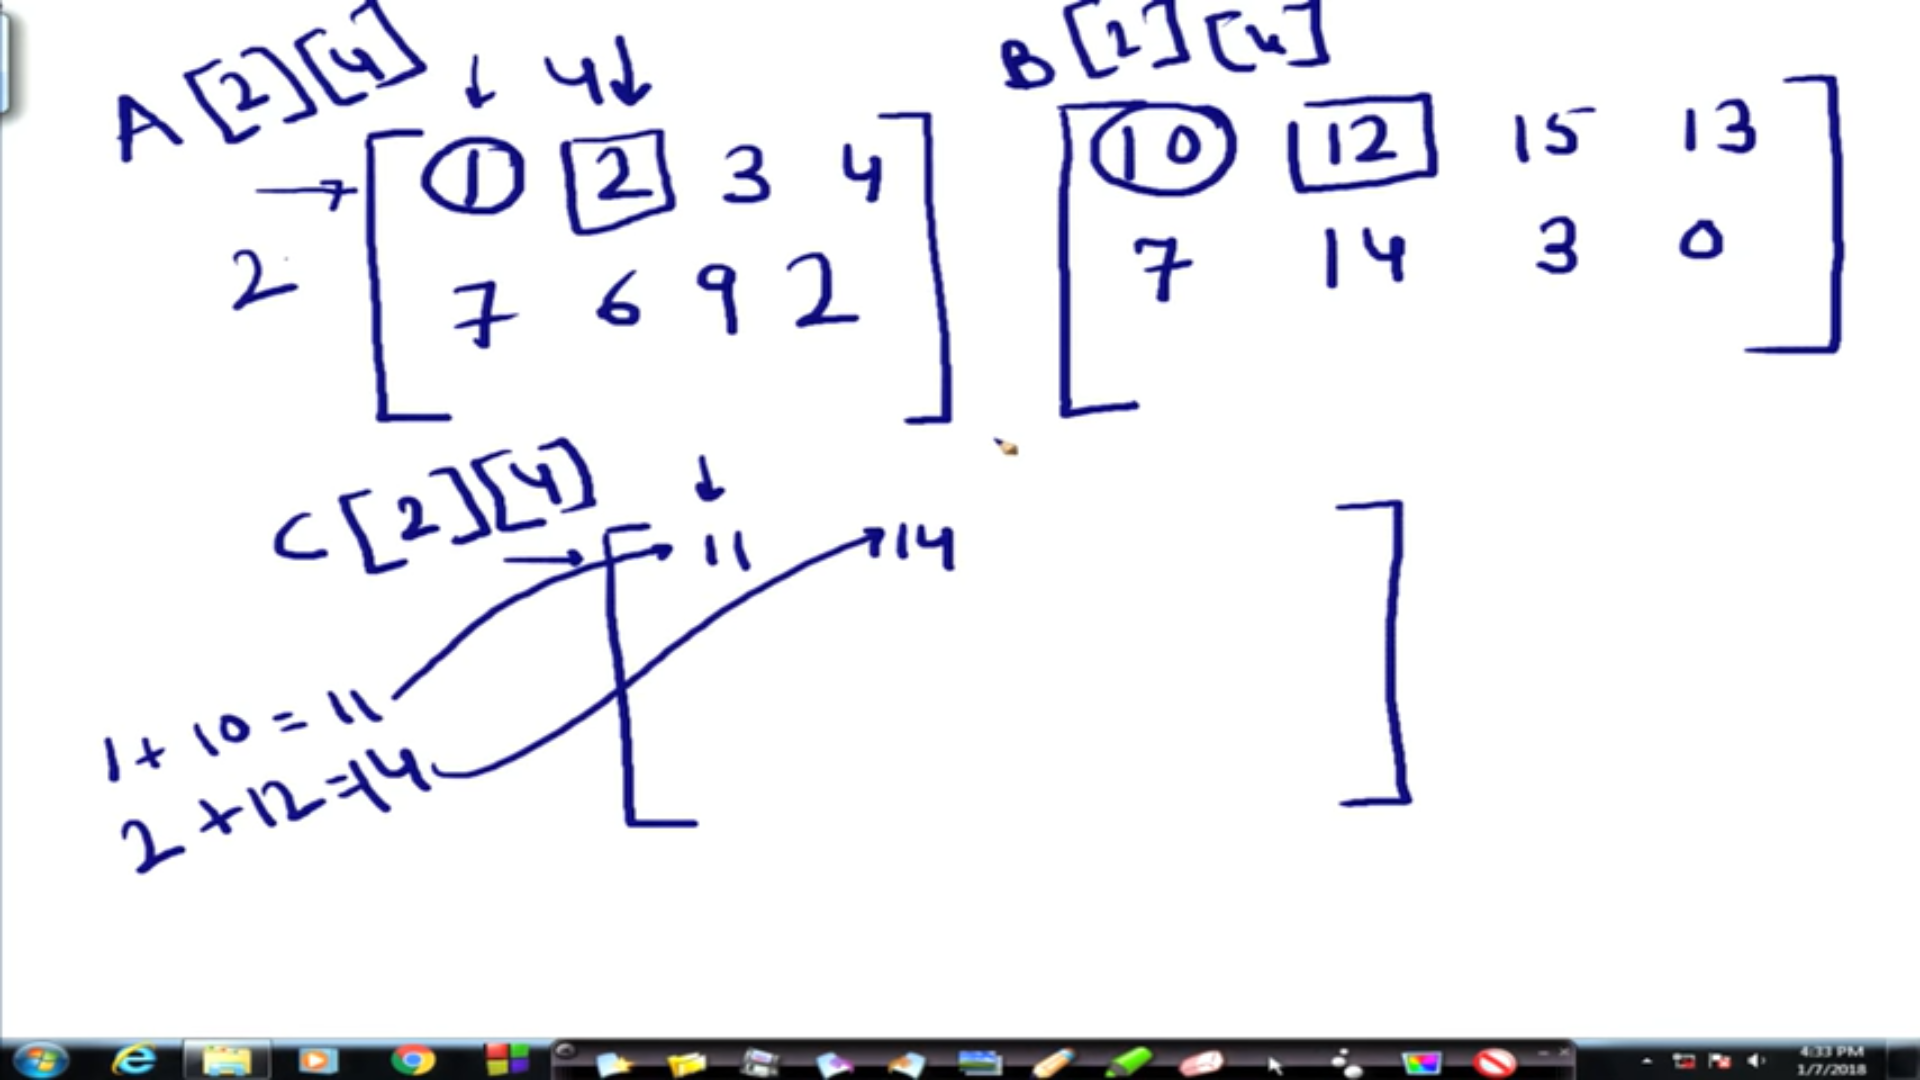 A[2][4] ↓ 4↓
B[2][4]
→ 1 2 3 4
2 7 6 9 2
10 12 15 13
7 14 3 0
C[2][4] ↓
→ 11 14
1+10=11
2+12=14
4:33 PM
1/7/2018